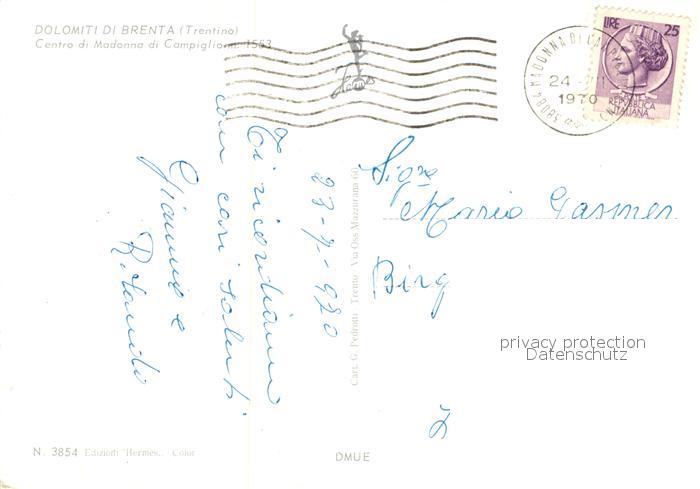 DOLOMITI DI BRENTA (Trentino)
Centro di Madonna di Campiglio m. 1563
Hermes
LIRE 25
POSTE
REPVBBLICA
ITALIANA
38084 MADONNA DI CAMP
24
1970
23-7-970
Ti ricordiamo
con cari saluti
Giannio e
Rolando
Cart. G. Pedrotti Trento Via Oss Mazzurana 60
Sigra
Maria Gasser
Birg
privacy protection
Datenschutz
N. 3854 Edizioni "Hermes.. Color
DMUE